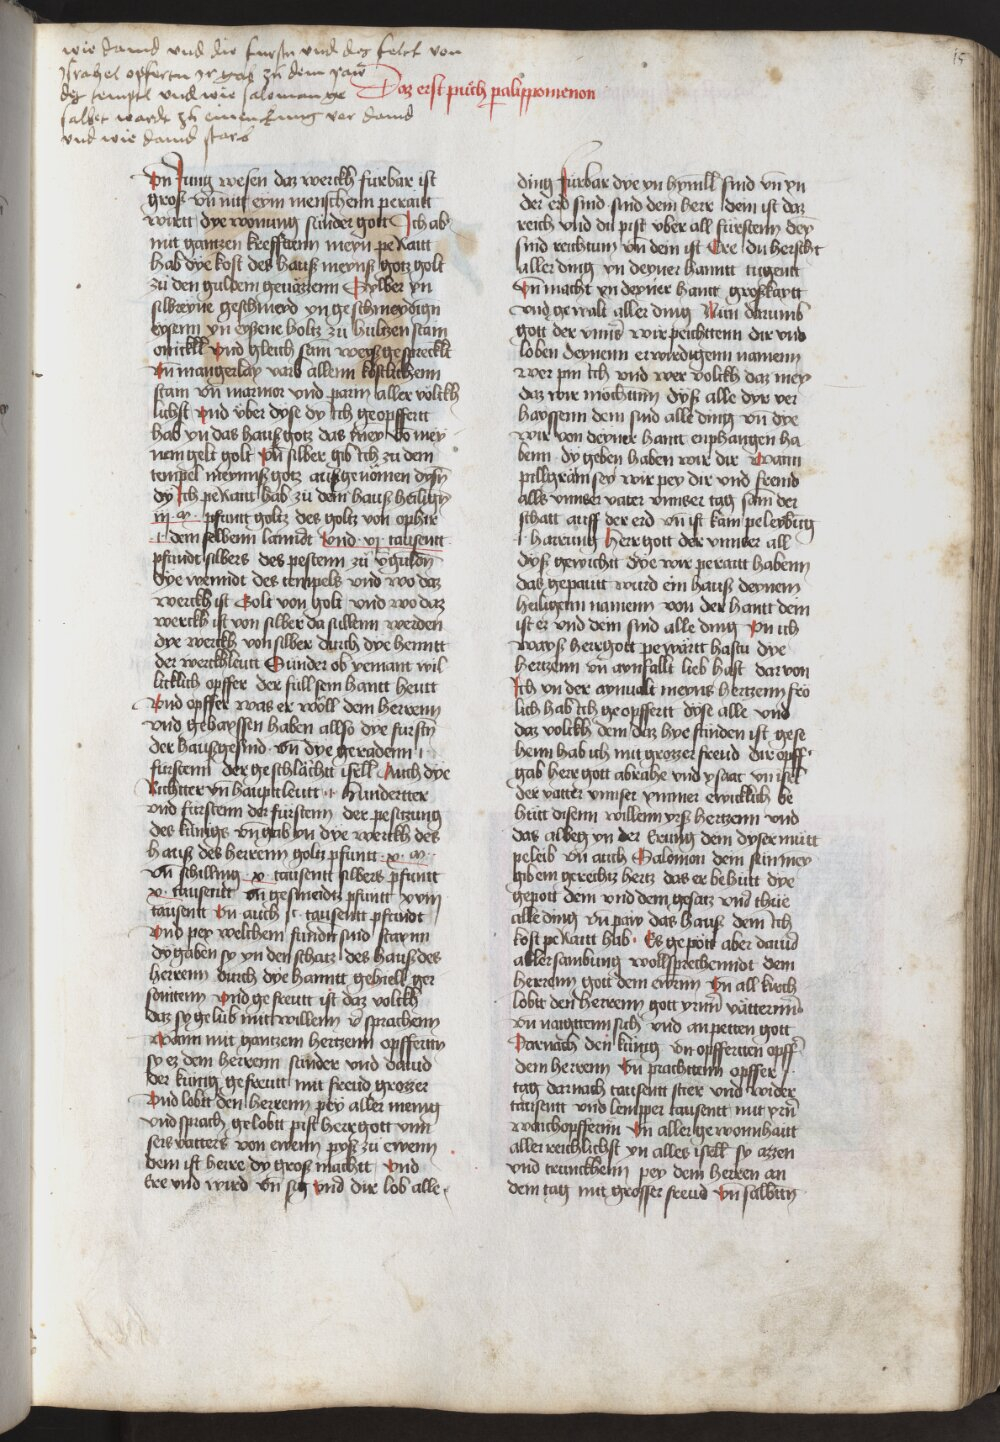 15
wie dauid vnd die fursten vnd daz folck von
Jsrahel opferten Jr gab zu dem paw
deß tempel vnd wie salomon ge
salbet wardt zu einem kunig vor dauid
vnd wie dauid starb
Daz erst půch paralippomenon
vn Jung wesen daz werckh furbar ist
groß vn nitt eym menschenn peraitt
wirtt dye wonung sunder gott Ich ab
mit gantzen krefftenn meyn peraitt
hab dye kost des hauß meynß gotz golt
zu den guldem geuäzenn Sylber yn
silbreyne geschmeyd yn geschmeydign
eysenn yn eysene holtz zu hultzen stain
onickll vnd gleich sam weyß gespreckllt
vn mangerlay varb allenn kostlichenn
stain vn marmor vnd parin aller völckh
lichst vnd vber dyse dy ich geopffertt
hab yn das hauß gotz das mey vo mey
nem gelt golt vn silber gib ich zu dem
tempel meynnß gotz außgenömen dysn
dy ich peraitt hab zu dem hauß heilign
iii m pfuntt goltz des goltz von ophir
dem selbenn lanndt vnd vii tausentt
pfundt silbers des pestenn zu vguldn
dye wenndt des tempels vnd wo daz
werckh ist Golt von golt vnd wo daz
werckh ist von silber da sullenn werden
dye werckh von silber durch dye henntt
der werckhleutt Sunder ob yemant wil
licklich opffer der full sein hantt heutt
vnd opffer was er wöll dem herrenn
vnd gehayssen haben allso dye furstn
der haußgesind vn dye geradenn
furstenn der geschlächtt isell Auch dye
Richtter vn hauptleutt hundertter
vnd furstenn der furstenn der pesitzung
des kunigs vn gab yn dye werckh des
hauß des herrenn goltz pfuntt v m
vn schilling x tausentt silbers pfuntt
x tausentt vn gesmeidtz pfuntt xviii
tausentt vn auch c tausentt pfundt
vnd pey welchem fundn sind stainn
dy gaben sy yn den schatz des hauß des
herrenn durch dye hanntt gehiell ger
sonitenn vnd gefreutt ist daz volckh
daz sy gelub mitt willenn v̈sprachenn
Wann mit gantzem hertzenn opffertn
sy ez dem herrenn sunder vnd dauid
der kunig gefreutt mit freud grozzer
vnd lobtt den herrenn pey aller menig
vnd sprach gelobtt pist herr gott vnn
sers vatters von ewenn pyß zu ewenn
dein ist herre dy groß machtt vnd
Ere vnd wird vn sig vnd dir lob alle
ding furbar dye yn hymll sind vn yn
der erd sind sind dem herr dein ist daz
reich vnd du pist vber all fürstenn dey
sind reichtum vn dein ist Ere du herscht
aller ding yn deyner hanntt tugentt
vn macht yn deyner hantt großkaytt
vnd gewalt aller ding Nun darumb
gott der vnnß wir peichttenn dir vnd
loben deynenn erwirdigenn namenn
wer pin ich vnd wer volckh daz mey
daz wir möchtinn dyß alle dyr ver
hayssenn dein sind alle ding vn dye
wir von deyner hantt enphangen ha
benn dy geben haben wir dir Wann
pilligräm sey wir pey dir vnd fremd
alls vnnser vater vnnser tag sam der
schatt auff der erd vn ist kain peleybung
harrung herr gott der vnnser all
dyß gewichtt dye wir peraitt habenn
das gepautt wurd ein hauß deynem
heiligenn namenn von der hantt dein
ist ez vnd dein sind alle ding vn ich
wayß herr gott pewärtt hastu dye
hertzenn vn aynfallt lieb hast dar von
Ich yn der aynualt meyns hertzenn frö
lich hab ich geopffertt dyse alle vnd
daz volckh dem daz hye funden ist gese
henn hab ich mit grozzer freud dir opff
gab herr gott abrahe vnd ysaac vn isrl
der vatter vnnser ymmer ewicklich be
hütt disenn willenn yrß hertzenn vnd
das albeg yn der Erung dein dyser mütt
peleib vn auch Salomon dem sun mey
gib ein gerechtz hertz das er behutt dye
gepott dein vnd dein gesatz vnd thue
alle ding vn paw das hauß dem ich
kost peraitt hab Es gepött aber dauid
aller sambung wollsprechenndt dem
herrenn gott dem ewnn vn all kirch
lobtt den herrenn gott yrnn vätternn
vn naigttenn sich vnd an petten gott
Darnach den kunig vn opffertten opff
dem herrenn vn prachttenn opffer
tag darnach tausentt stier vnd wider
tausentt vnd lemper tausentt mit yrn
weichopffernn vn aller gewonhaitt
aller reichlichst yn alles isell sy azzen
vnd trunckhenn pey dem herren an
dem tag mit grosser freud vn salbttn